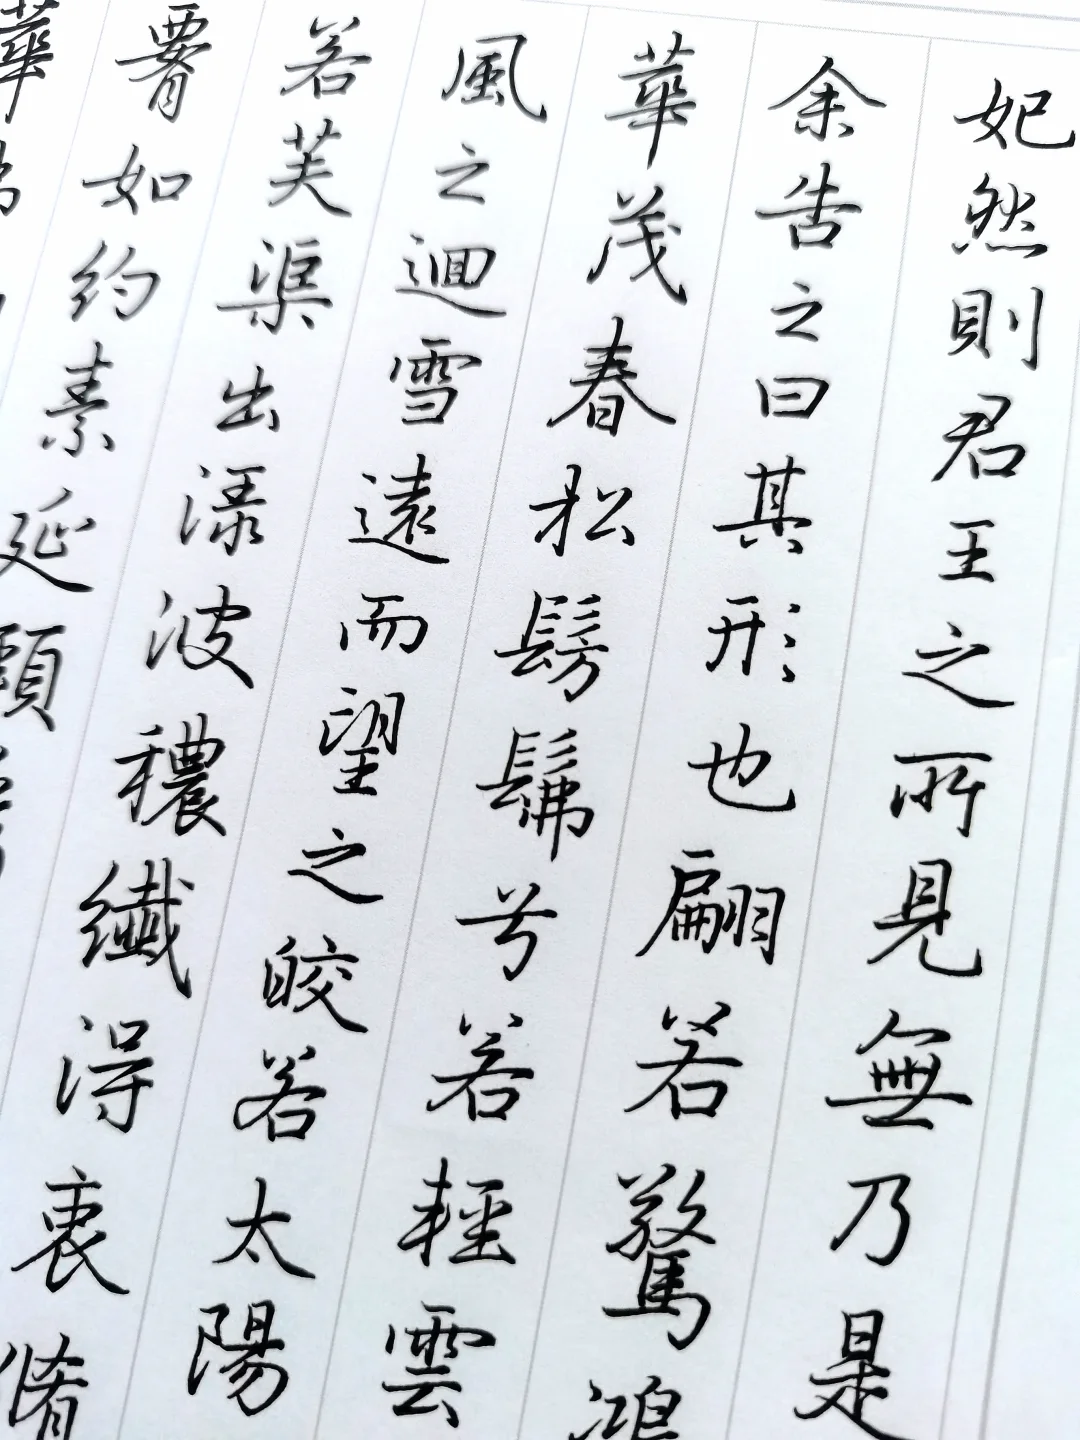 妃然則君王之所見無乃是
余告之曰其形也翩若驚鴻
華茂春松髣髴兮若輕雲
風之迴雪遠而望之皎若太陽
若芙渠出淥波穠纖得衷脩
如約素延頸
華